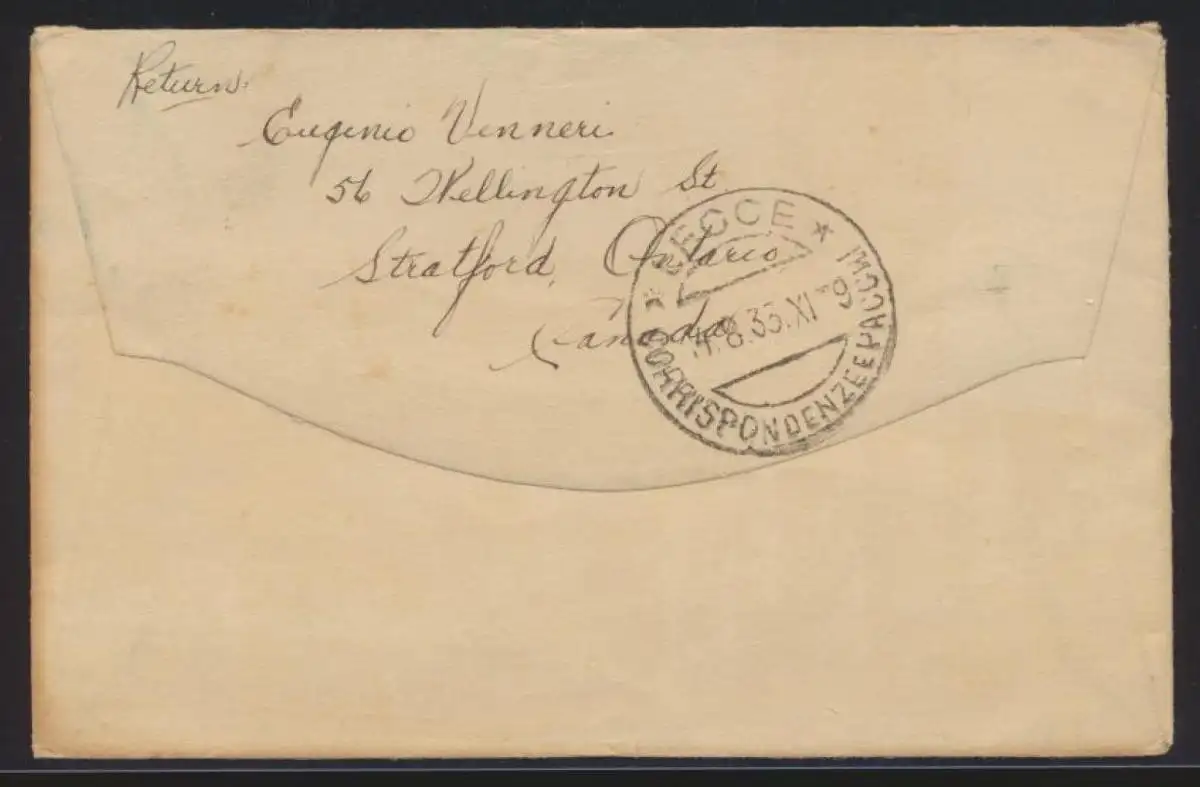 Return.
Eugenio Venneri
56 Wellington St.
Stratford, Ontario
Canada
* LECCE *
.8.33.XI-9
CORRISPONDENZE E PACCHI